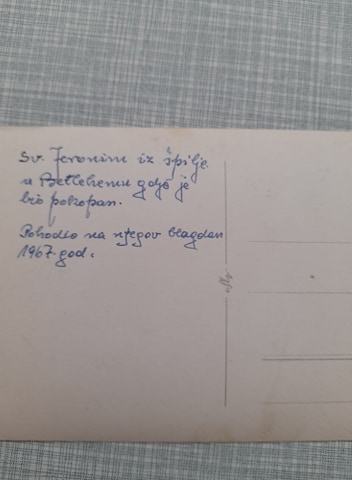 Sv. Jeronim iz špilje
u Betlehemu gdje je
bio pokopan.
Pohodio na njegov blagdan
1967 god.